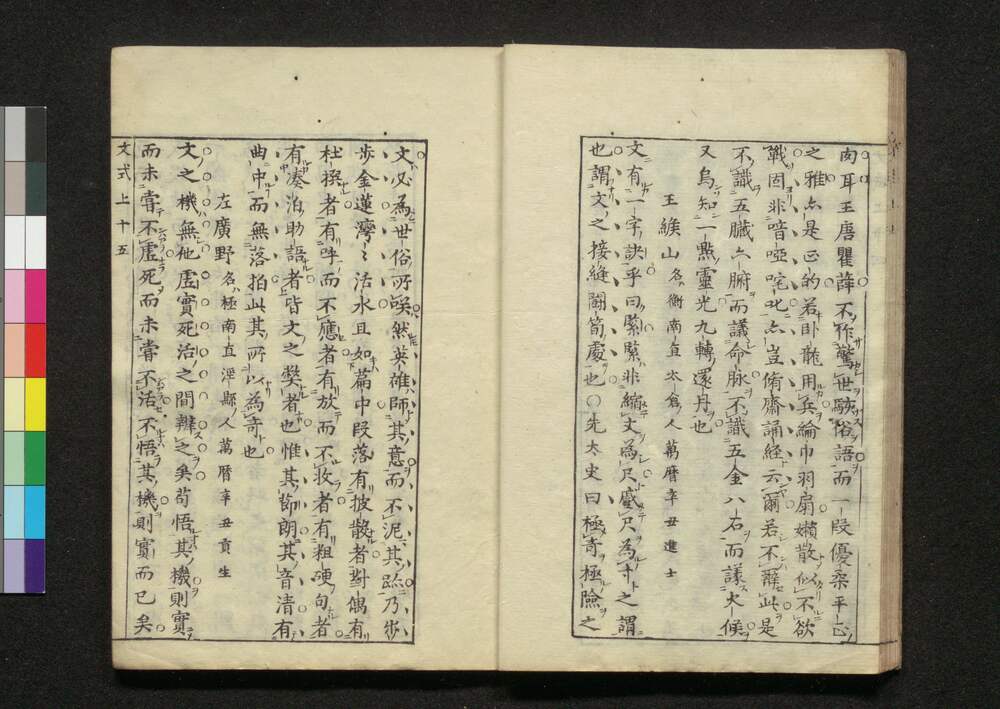 肉耳王唐瞿薛不作驚世駭俗語而一段優柔平正
之雅亦是正的若臥龍用兵綸巾羽扇嬾散似不欲
戰固非喑啞咤叱亦豈脩齋誦經云爾若不辭此是
不識五臟六腑而議命脉不識五金八石而議火候
又烏知一點靈光九轉還丹也
王緱山 名衡南直太倉人萬曆辛丑進士
文有一字訣乎曰緊緊非縮丈為尺蹙尺為寸之謂
也謂文之接縫鬪筍處也○先太史曰極奇極險之
文必為世俗所喚然英雄師其意而不泥其跡乃步
步金蓮灣灣活水且如篇中段落有披散者對偶有
杜撰者有呼而不應者有放而不收者有粗硬句者
有湊泊助語者皆文之獘者也惟其節朗其音清有
曲中而無落拍此其所以為奇也
左廣野 名極南直涇縣人萬曆辛丑貢生
文之機無他虛實死活之間辨之矣苟悟其機則實
而未嘗不虛死而未嘗不活不悟其機則實而已矣
文式上十五